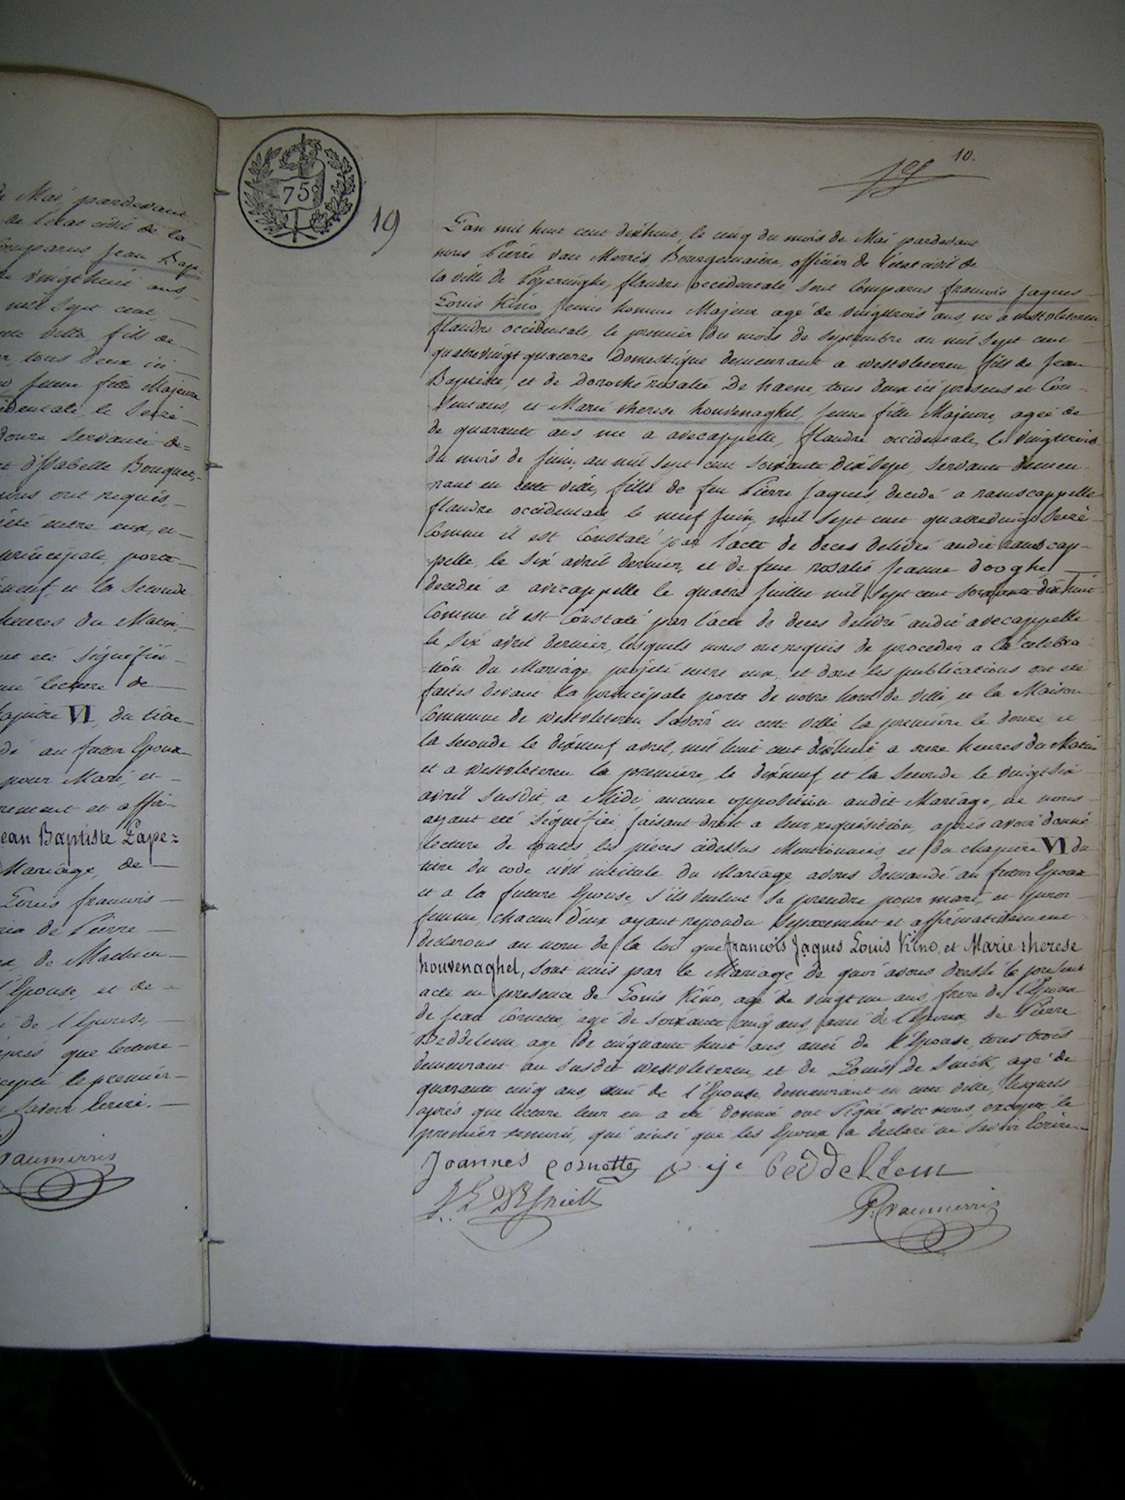 de Mai pardevant
de l'état civil de la
comparus Jean Bap-
de vingthuit ans,
mil sept cent
cette ville fils de
tous deux ici
jeune fille Majeure
occidentale, le Seize
Servante de=
et d'Isabelle Bouquet,
nous ont requis,
jeté entre eux, et
principale porte
dixneuf, et la Seconde
heures du Matin,
ont été signifiée
lecture de
chapitre VI du titre
au futur Epoux
pour Mari, et
et affir-
Jean Baptiste Lape=
Mariage, de
Louis francois
de Pierre
de Mathieu
l'Epouse, et de
de l'Epouse,
après que lecture
excepté le premier
savoir Ecrire.
P. vanmerris
75c
19
10.
L'an mil huit cent dixhuit, le cinq du mois de Mai pardevant
nous Pierre van Merris Bourguemaitre, officier de l'état civil de
la ville de Poperinghe, flandre occidentale sont Comparus francois Jaques
Louis Kino Jeune homme Majeur agé de vingttrois ans, né a westvleteren
flandre occidentale, le premier du mois de septembre an mil sept cent
quatrevingt quatorze Domestique demeurant a westvleteren fils de Jean
Baptiste, et de Dorothé rosalie De haene, tous deux ici présens et Con-
Sentans, et Marie therese houvenaghel Jeune fille Majeure, agée de
de quarante ans née a avecappelle, flandre occidentale, le vingttrois
du mois de Juin, an mil sept cent soixante dix sept, servante demeu-
rant en cette ville, fille de feu Pierre Jaques, decedé a ramscappelle
flandre occidentale le neuf Juin, mil sept cent quatrevingt Seize
Comme il est Constaté par l'acte de deces delivré audit ramscap-
pelle, le Six avril dernier, et de feue rosalie Jeanne dooghe
decedée a avecappelle le quatre Juillet mil sept cent soixante dix huit
Comme il est Constaté par l'acte de deces delivré audit avecappelle
le Six avril dernier, lesquels nous ont requis de proceder a la celebra
-tion du Mariage projeté entre eux, et dont les publications ont été
faites devant la principale porte de notre hotel de ville et la Maison
Commune de westvleteren, Savoir en cette ville la premiere le douze et
la seconde le dixneuf avril, mil huit cent dixhuit, a onze heures du Matin
et a westvleteren la premiere, le dixneuf et la seconde le vingt six
avril susdit, a Midi, aucune opposition audit Mariage, ne nous
ayant été signifiée, faisant droit a leur requisition, après avoir donné
lecture de toutes les pièces cidessus Mentionnées, et du chapitre VI du
titre du code civil intitulé du Mariage avons demandé au futur Epoux
et a la future Epouse, s'ils veulent se prendre pour mari, et pour
femme, chacun d'eux ayant repondu Séparement et affirmativement
declarons au nom de la loi que francois Jaques Louis Kino, et Marie therese
houvenaghel, sont unis par le Mariage de quoi avons dressé le present
acte en presence de Louis Kino, agé de vingt un ans, frere de l'Epoux
de Jean Cornette, agé de soixante cinq ans, ami de l'Epoux, de Pierre
Beddeleem, agé de cinquante huit ans, ami de l'Epouse, tous trois
demeurant au susdit westvleteren, et de Louis de Smidt, agé de
quarante cinq ans, ami de l'Epouse, demeurant en cette ville, lesquels
après que lecture leur en a été donnée ont signé avec nous, excepté le
premier temoin, qui ainsi que les Epoux a declaré ne savoir Ecrire
Joannes cornette
P. vanmerris